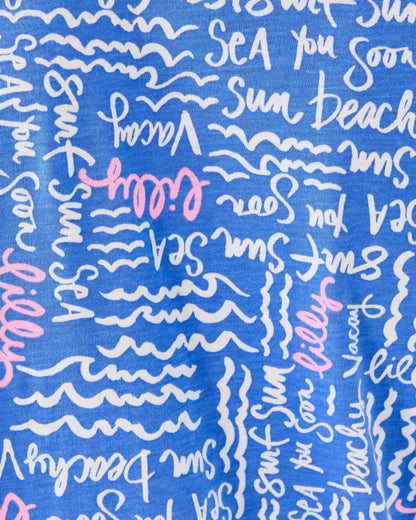 SEA you Soon
Sun beach
Vacay
Sun
lilly
SEA you Soon
Surf Sun SEA
SEA you Soon
lilly
Surf Sun SEA
Soon
you
SEA
lilly
Vacay
lilly
Surf Sun
SEA you Soon
beachy
Sun Beachy V